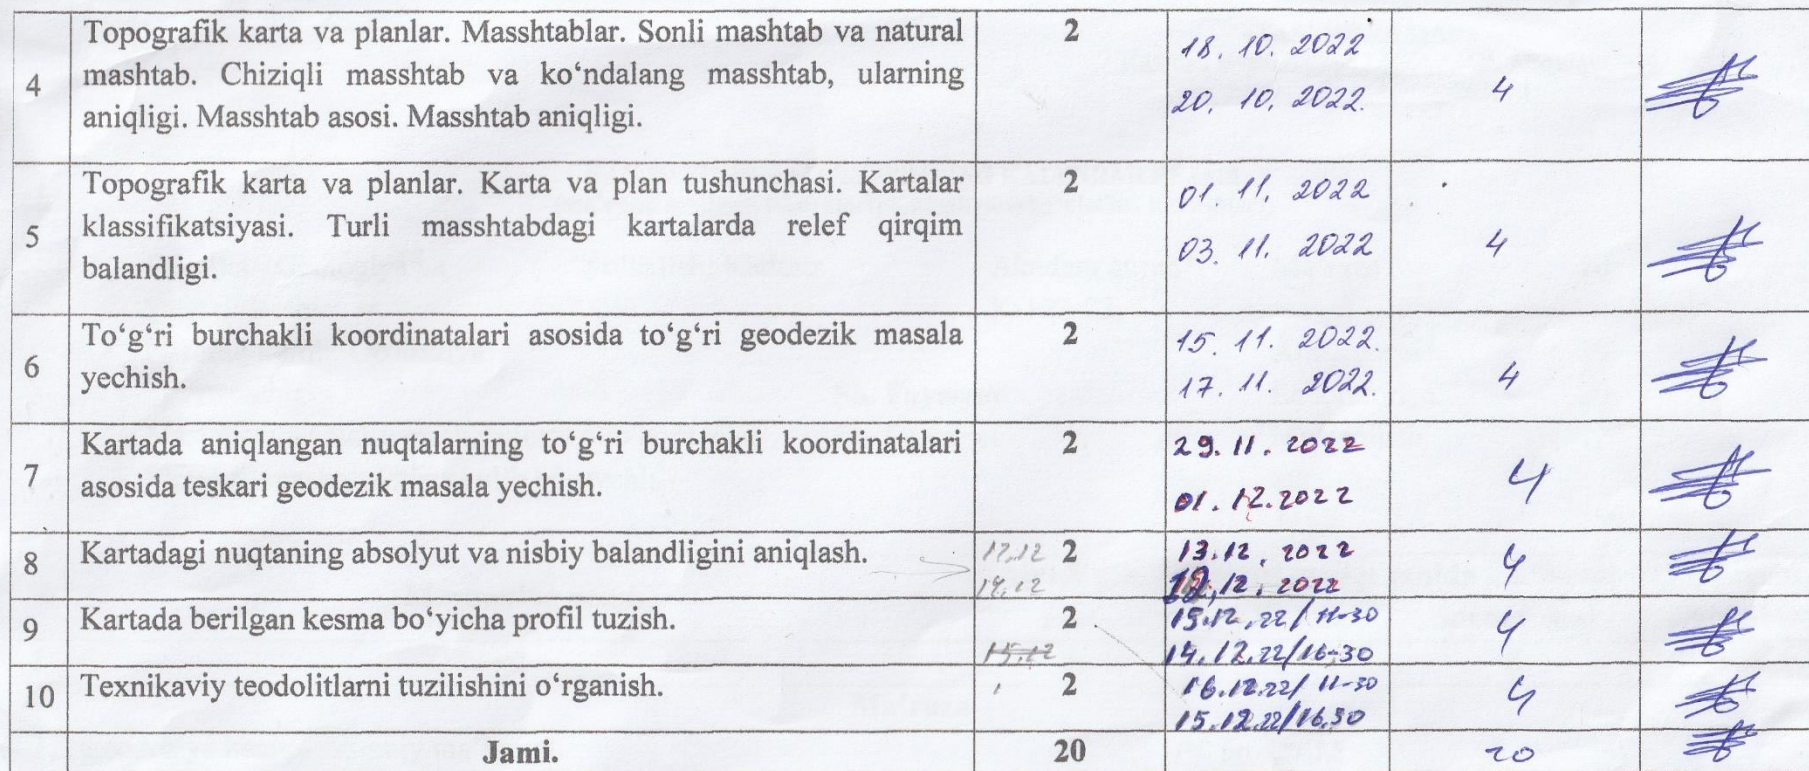 4 Topografik karta va planlar. Masshtablar. Sonli mashtab va natural 2 18. 10. 2022
mashtab. Chiziqli masshtab va ko‘ndalang masshtab, ularning 20. 10. 2022. 4
aniqligi. Masshtab asosi. Masshtab aniqligi.
5 Topografik karta va planlar. Karta va plan tushunchasi. Kartalar 2 01. 11. 2022
klassifikatsiyasi. Turli masshtabdagi kartalarda relef qirqim 03. 11. 2022 4
balandligi.
6 To‘g‘ri burchakli koordinatalari asosida to‘g‘ri geodezik masala 2 15. 11. 2022.
yechish. 17. 11. 2022. 4
7 Kartada aniqlangan nuqtalarning to‘g‘ri burchakli koordinatalari 2 29. 11. 2022
asosida teskari geodezik masala yechish. 01. 12. 2022 4
8 Kartadagi nuqtaning absolyut va nisbiy balandligini aniqlash. 2 13. 12. 2022 4
14.12 12. 2022
9 Kartada berilgan kesma bo‘yicha profil tuzish. 2 15.12.22/11-30 4
15.12 14.12.22/16-30
10 Texnikaviy teodolitlarni tuzilishini o‘rganish. 2 16.12.22/ 11-30 4
15.12.22/16.30
Jami. 20 20